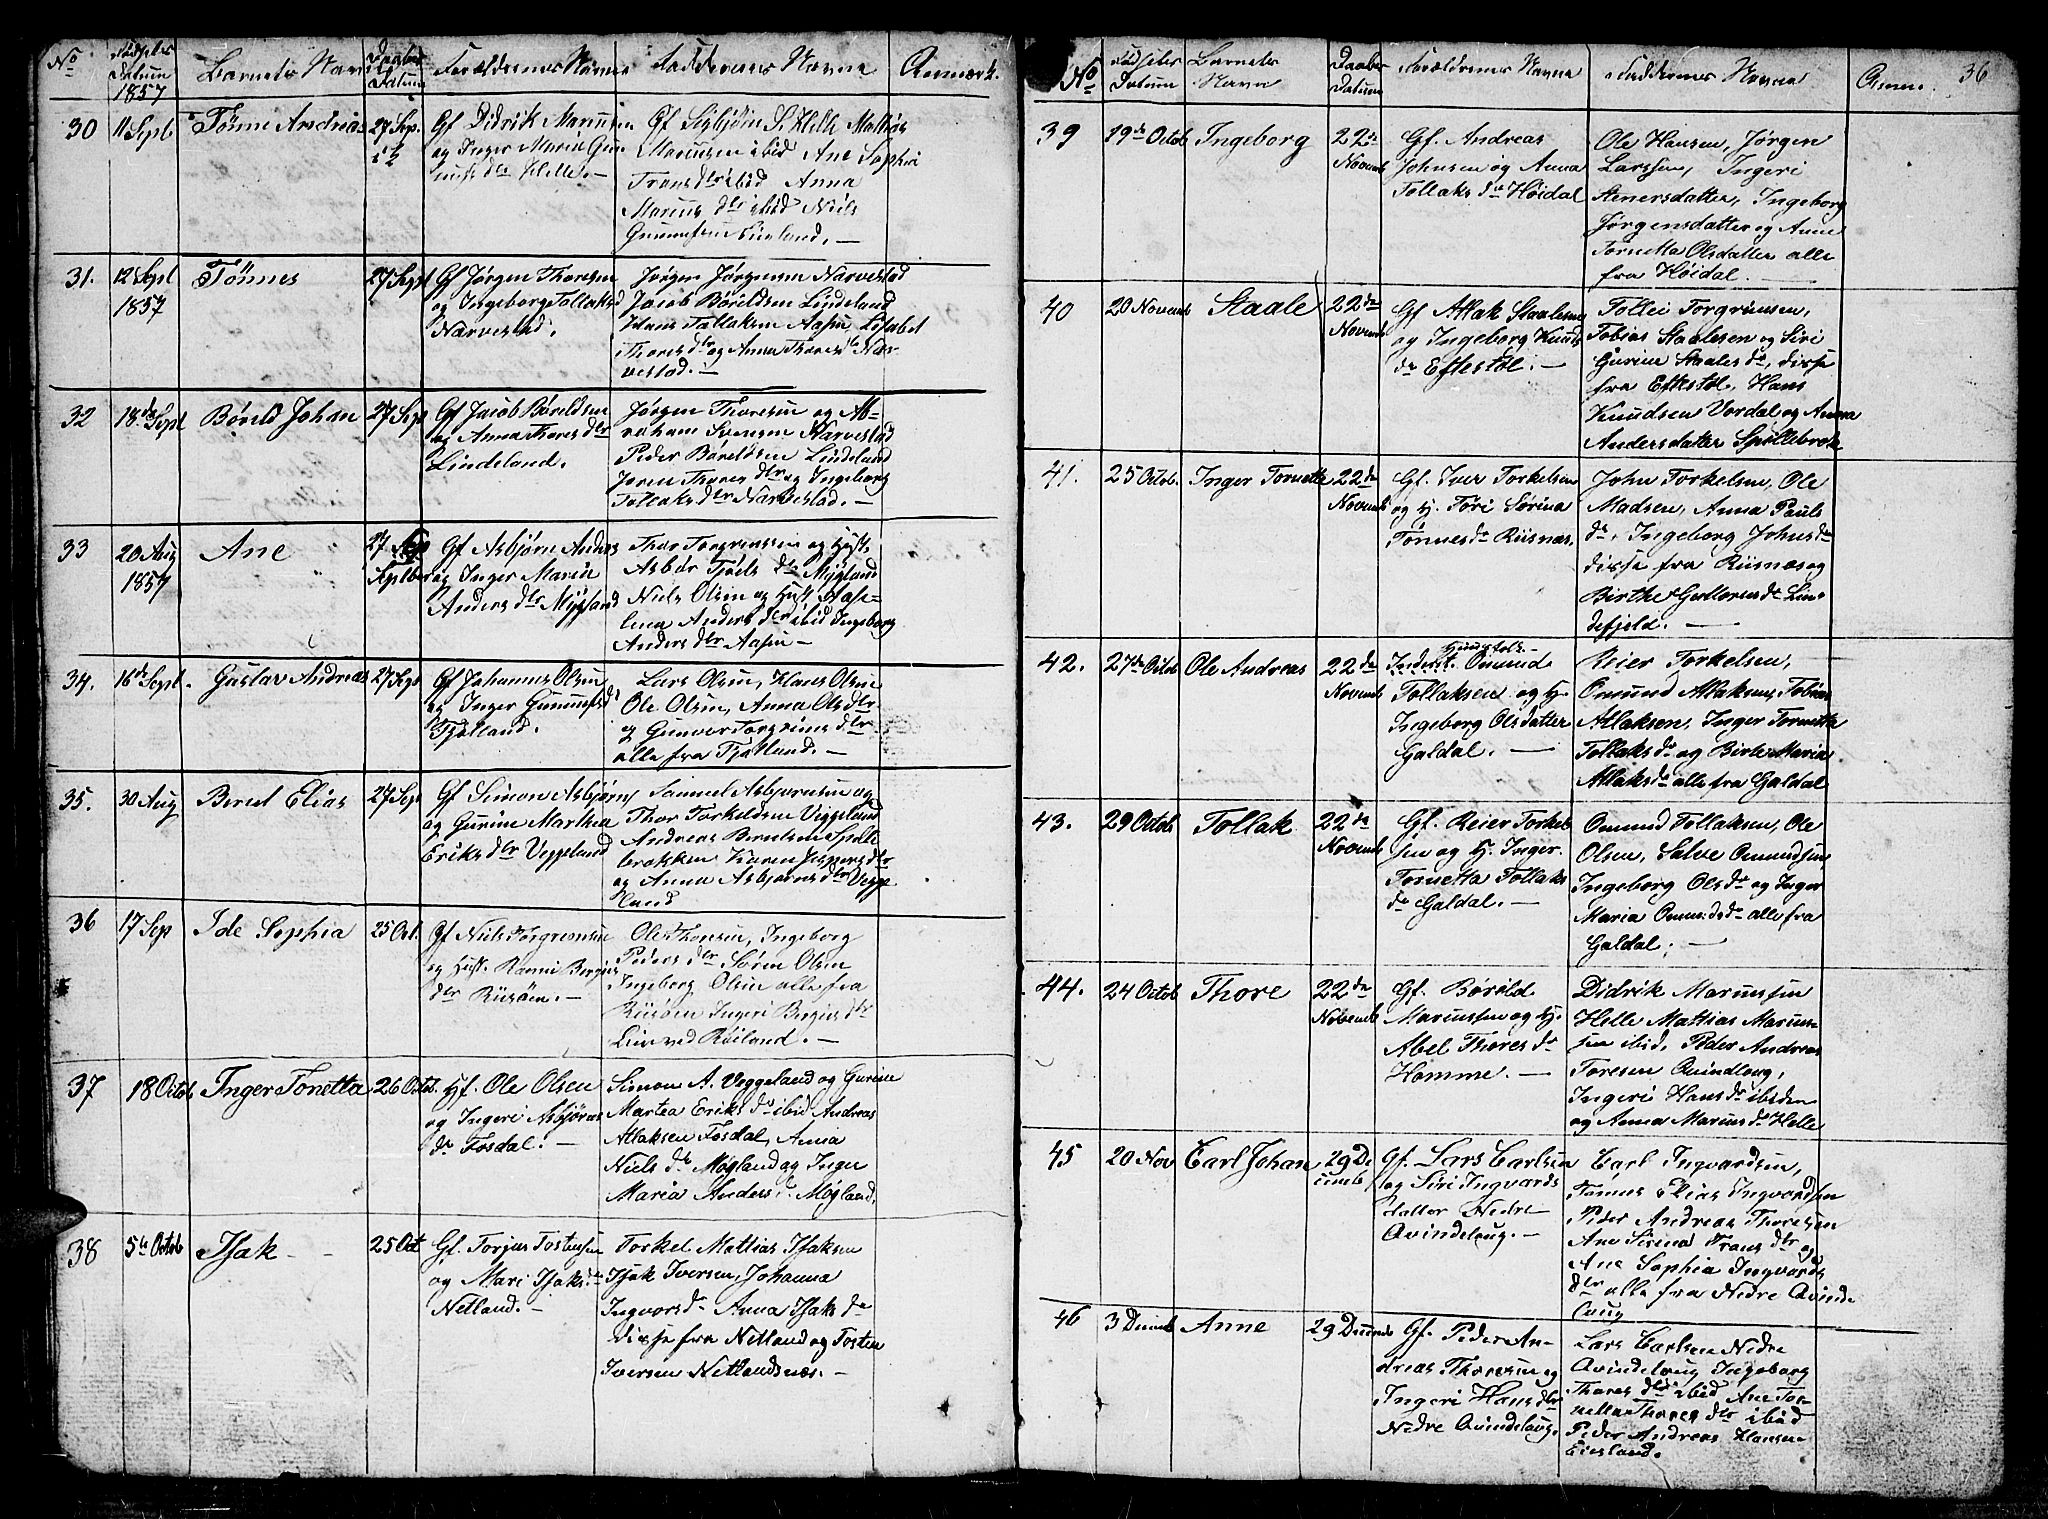 No Fødsels Datum 1857 Barnets Navn Daabs Datum Forældrenes Navne Faddernes Navne Anmærk.
30 11 Sept Tönne Andreas 27 Sep. Gf Didrik Marius
og Inger Maria Gun-
dtr Helle. —
Gf Sigbjörn S. Helle Mathias
Mariusen ibid Ane Sophia
Frans dtr ibid Anna
Marius dtr ibid Niels
31. 12 Sept 1857 Tönnes 27 Sept Gf Jörgen Thoresen
og Ingeborg Tollaks d
Narvestad.
Jörgen Jörgensen Narvestad
Jacob Böreldsen Lindeland
Hans Tollaksen Aasen Lisabet
Thores dtr og Anna Thores dtr Nar-
vestad. —
32 18de Sept Böreld Johan 27 Sept Gf Jacob Böreldsen
og Anna Thores dtr
Lindeland.
Jörgen Thoresen og A-
braham Svensen Narvestad
Peder Böreldsen Lindeland
Joren Thores dtr og Ingeborg
Tollaks dtr Narvestad. —
33 20 Aug 1857 Ane 27 Septbr Gf Asbjörn Anders
og Inger Maria
Anders dtr Mygland
Thor Torgrimssen og Hust.
Asbør Tjöls dtr Mygland
Niels Olsen og Hust Aase-
lena Anders dtr ibid Ingeborg
Anders dtr Aasen —
34. 16de Sept. Gustav Andreas 27 Sept Gf Johannes Olsen
og Inger Gunnufs d
Tjelland.
Lars Olsen, Hans Olsen
Ole Olsen, Anna Ols dtr
og Gunver Torgrims dtr
alle fra Tjelland. —
35. 30 Aug Bernt Elias 27 Sept Gf Simon Asbjörns
og Gurine Marthea
Eriks dtr Veggeland
Samuel Asbjørnsen og
Thor Torkeldsen Veggeland
Andreas Berntsen Spille
brokken Karen Jespers dtr
og Anna Asbjørns dtr Vegge
land
36 17 Sep Ide Sophia 25 Oct. Gf Niels Torgrimsen
og Hust. Ranni Bergius
dtr Risöen. —
Ole Thorsen, Ingeborg
Peders dtr Sören Olsen
Ingeborg Olsen alle fra
Risöen Ingeri Bergius dtr
Lien ved Röiland. —
37 18 Octob Inger Tonetta 26 Octb. Hf. Ole Olsen
og Ingeri Asbjörns
dtr Fosdal. —
Simon A. Veggeland og Gurine
Martea Eriks dr ibid Andreas
Atlaksen Fosdal, Anna
Niels dr Mögland og Inger
Maria Anders d. Mögland.
38 5te Octob Isak — 25 Oct Gf. Torjus Tostensen
og Mari Isaks dr
Netland. —
Torkel Mathias Isaksen
Isak Iversen, Johanna
Ingvors dr Anna Isak dr
disse fra Netland og Tosten
Iversen Netlandsnæs. —
No Fødselss Datum Barnets Navn Daabs Datum Forældrenes Navne Faddernes Navne Anm. 36
39 19de Octob Ingeborg 22de Novemb Gf. Andreas
Johnsen og Anna
Tollaks dr Höidal
Ole Hansen, Jörgen
Larssen, Ingeri
Stenersdatter, Ingeborg
Jörgensdatter og Anne
Tornetta Olsdatter alle
fra Höidal. —
40 20 Novemb Staale 22de Novemb Gf Atlak Staalesen
og Ingeborg Knuds
dr Eftestöl. —
Tollei Torgrimsen,
Tobias Staalesen og Siri
Gurine Staales dr, disse
fra Eftestöl, Hans
Knudsen Vordal og Anna
Andersdatter Spillebrok
41. 25 Octob. Inger Tornetta 22de Novemb Gf. Iver Torkelsen
og H. Tori Sörina
Tönnes dr Risnæs.
John Torkelsen, Ole
Madsen, Anna Pauls
dr, Ingeborg Johns dr
disse fra Risnæs og
Birthe Guttorms dr Lin-
defjeld. —
42. 27de Octob Ole Andreas 22de Novemb Inderst Huusfolk Omund
Tollaksen og H.
Ingeborg Olsdatter
Galdal. —
Reier Torkelsen,
Omund Atlaksen, Tobias
Atlaksen, Inger Tornetta
Tollaks dr og Birte Maria
Atlaks dr alle fra Galdal
43. 29 Octob Tollak 22de Novemb Gf. Reier Torkel
sen og H. Inger
Tornetta Tollaks
dr Galdal. —
Omund Tollaksen, Ole
Olsen, Salve Omundsen,
Ingeborg Ols dr og Inger
Maria Omunds dr alle fra
Galdal. —
44. 24 Octob Thore 22de Novemb Gf. Böröld
Mariussen og H.
Abel Thores dr
Homme. —
Didrik Mariussen
Helle Mattias Marius-
sen ibid, Peder Andreas
Toresen Qvindlaug,
Ingeri Hans dr ibiden
og Anna Marius dr Helle
45 20 Nov Carl Johan 29 De
cemb Gf. Lars Carlsen
og Siri Ingvards
datter Nedre
Qvindelaug. —
Carl Ingvardsen,
Tönnes Elias Ingvardsen
Peder Andreas Thoresen
Ane Sirina Frans dtr og
Ane Sophia Ingvards
dtr alle fra Nedre Qvinde
laug
46 3 Decemb Anne 29 Decemb Gf. Peder An-
dreas Thoresen og
Ingeri Hans dtr
Nedre Qvindelaug.
Lars Carlsen Nedre
Qvindelaug Ingeborg
Thores dtr ibid Ane Tor-
netta Thores dtr ibid
Peder Andreas Hansen
Eiesland.